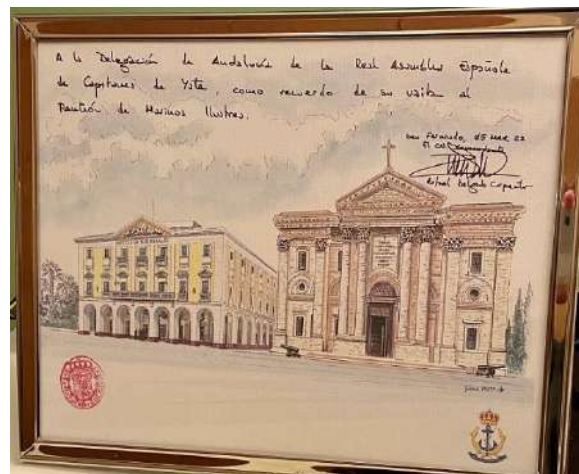 A la Delegación de Andalucía de la Real Asamblea Española
de Capitanes de Yate, como recuerdo de su visita al
Panteón de Marinos Ilustres.
San Fernando, 25 MAR 22
El
Rafael